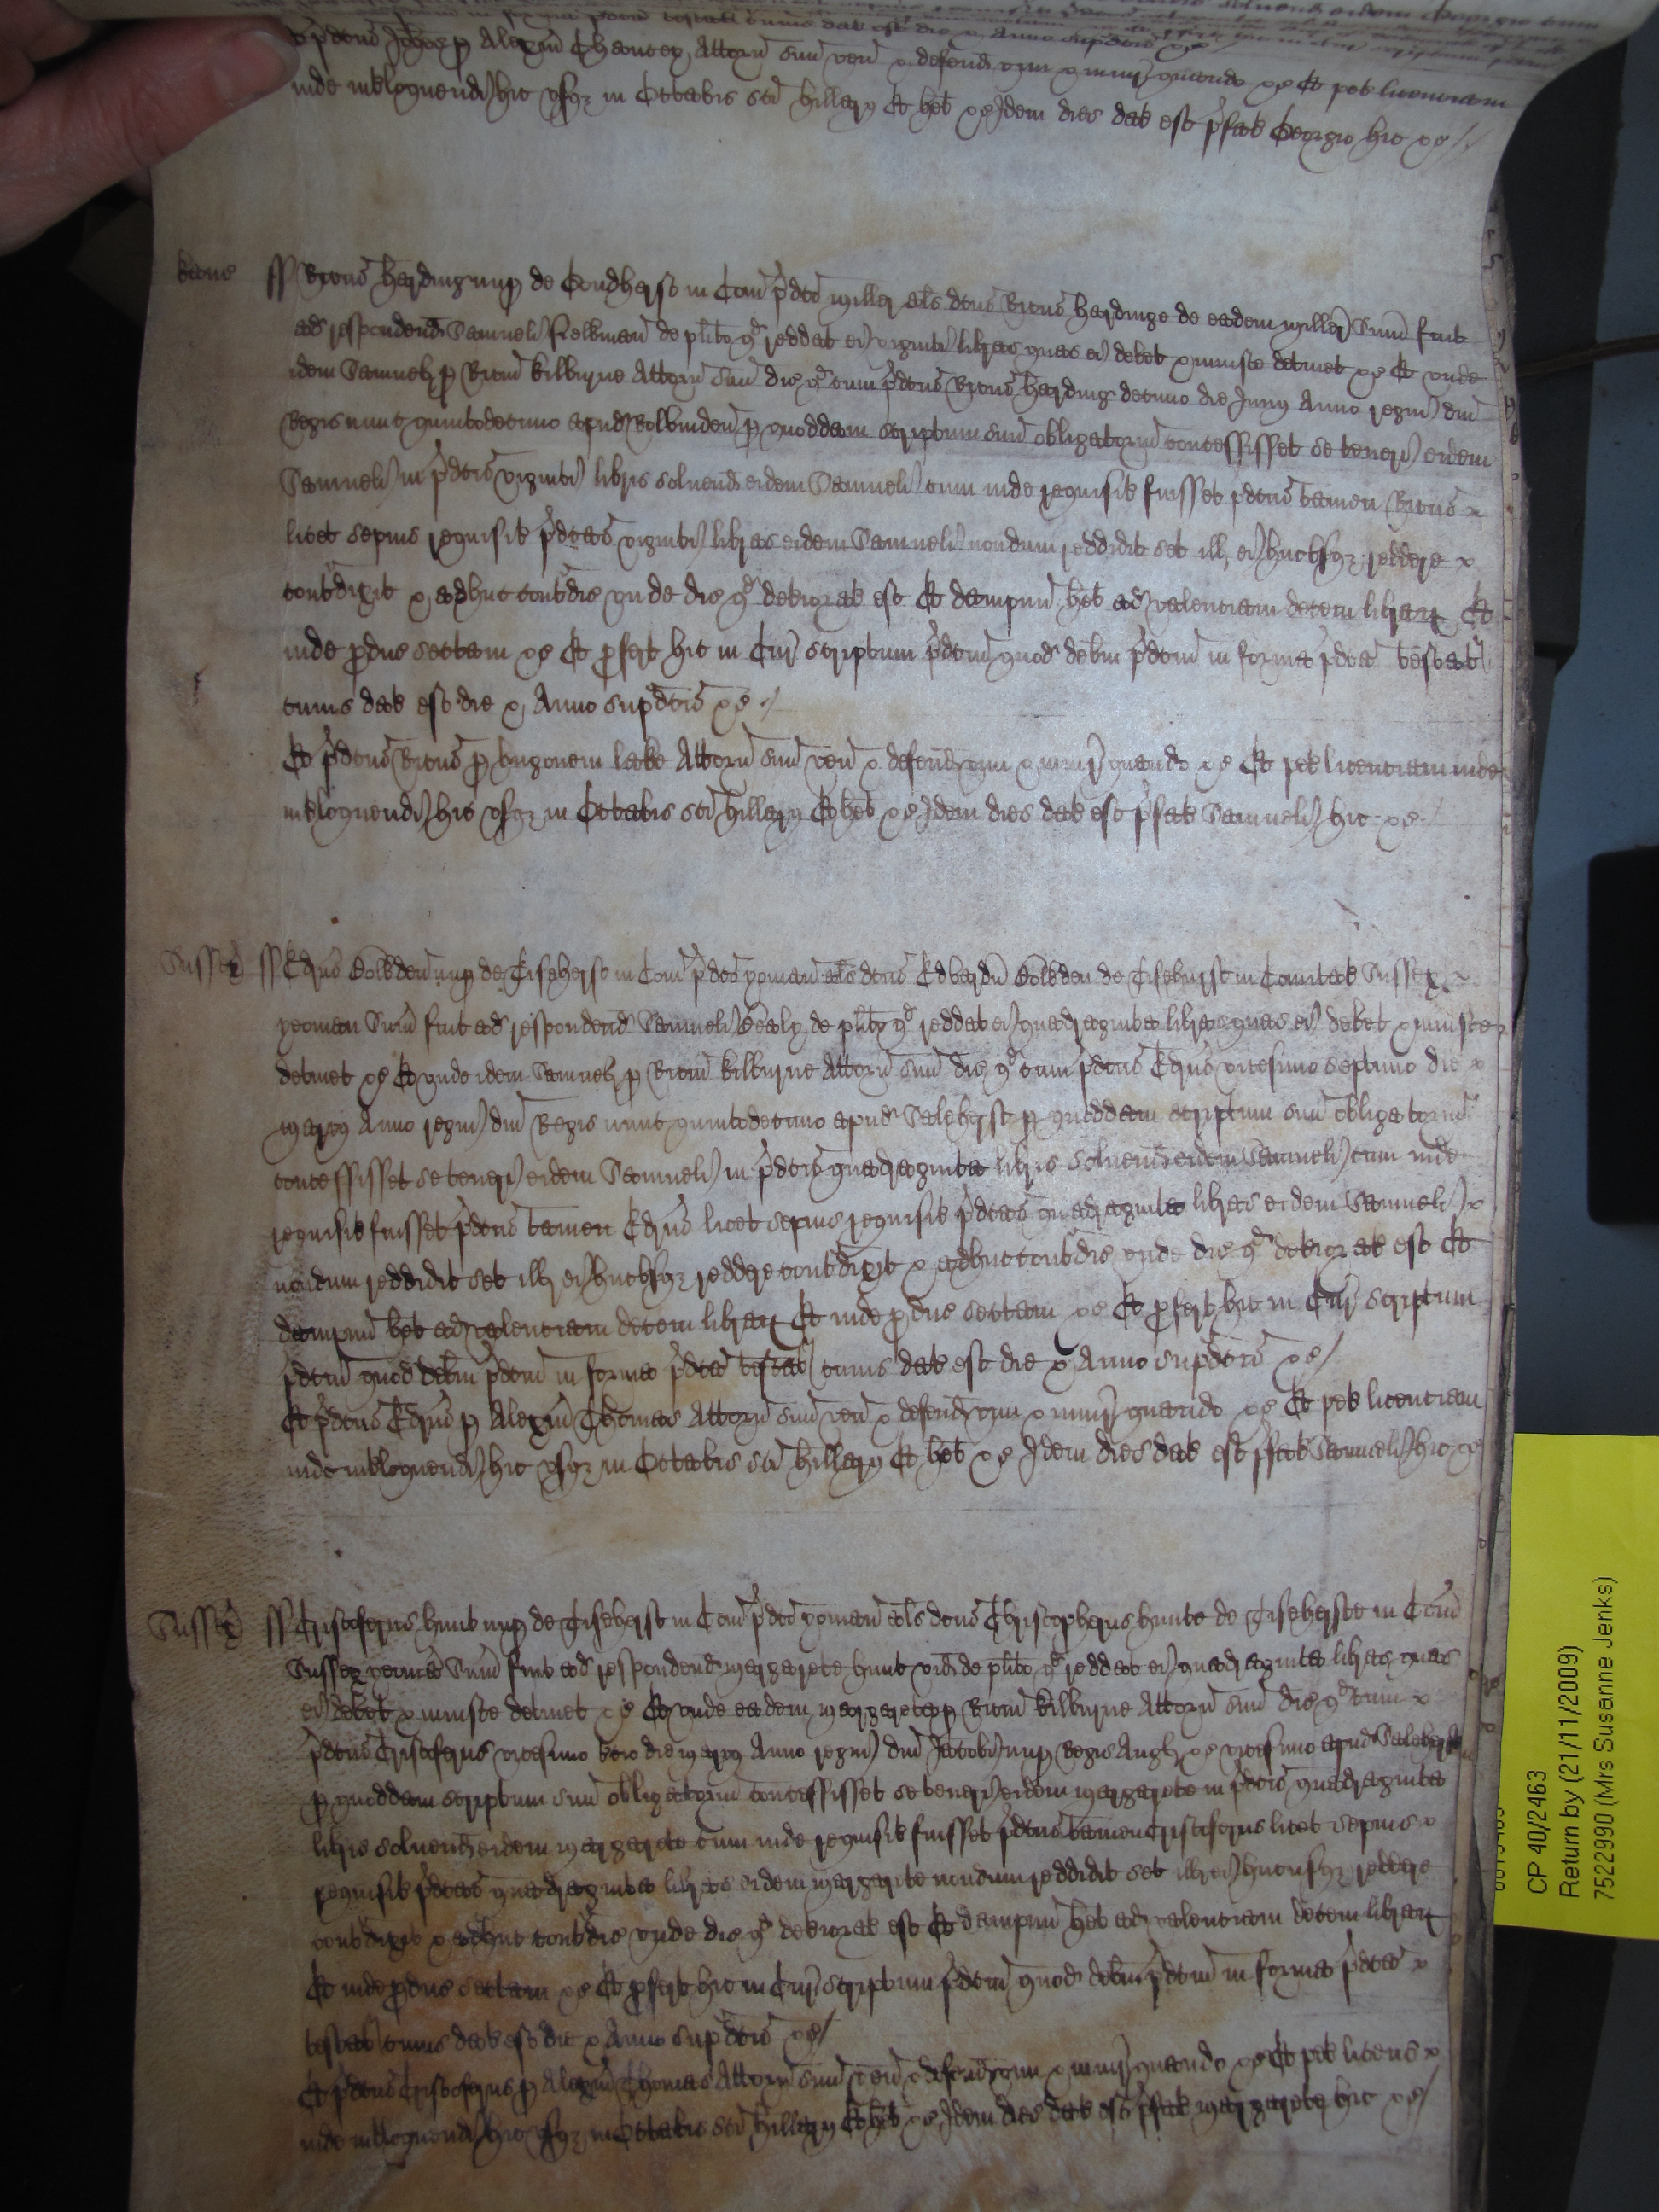 p̄dcus Joh̄es p Alexm̄ Thomas Attorn̄ suū ven̄ & defend vim & iniur̄ quando &c Et pet licenciam
inde inℓloquendi hic usq3 in Octabis sc̄i Hillarij Et het &c Idem dies dat est p̄fat Georgio hic &c
Kanc ss Ric̄us Harding nup de Goudherst in Com̄ p̄dc̄o miller at̄s dc̄us Ric̄us Hardinge de eadem miller Sum̄ fuit
ad respondend Samueli de pl̄ito qd reddat ei viginti libras quas ei debet & iniuste detinet &c Et unde
idem Samuel p Ric̄m Kilburne Attorn̄ suū dic qd cum p̄dc̄us Ric̄us Harding decimo die Junij Anno regni dn̄i
Regis nunc quintodecimo apud Rolvinden p quoddam scriptum suū obligatoriū concessisset se teneri eidem
Samueli in p̄dc̄is viginti libris solvend eidem Samueli cum inde requisit fuisset p̄dc̄us tamen Ric̄us
licet sepius requisit p̄dc̄as viginti libras eidem Samueli nondum reddidit set ill ei hucusq3 reddere
contdixit & adhuc contdic unde dic qd deteriorat est Et dampnū het ad valenciam decem librar Et
inde pduc sectam &c Et pfert hic in Cur̄ scriptum p̄dc̄m quod debm̄ p̄dc̄m in forma p̄dc̄a testat
cuius dat est die & Anno supdc̄is &c
Et p̄dc̄us Ric̄us p Hugonem Lake Attorn̄ suū ven̄ & defend vim & iniur̄ quando &c Et pet licenciam inde
inℓloquendi hic usq3 in Octabis sc̄i Hillarij Et het &c Idem dies dat est p̄fat Samueli hic &c
Sussex ss Edrūs nup de Tiseherst in Com̄ p̄dc̄o yoman at̄s dc̄us Edvardū de Tisehurst in Comitat Sussex
yeoman Sum̄ fuit ad respondend Samueli de pl̄ito qd reddat ei quadraginta libras quas ei debet & iniuste
detinet &c Et unde idem Samuel p Ric̄m Kilburne Attorn̄ suū dic qd cum p̄dc̄us Edrūs vicesimo septimo die
Marcij Anno regni dn̄i Regis nunc quintodecimo apud Saleherst p quoddam scriptum suū obligatoriū
concessisset se teneri eidem Samueli in p̄dc̄is quadraginta libris solvend eidem Samueli cum inde
requisit fuisset p̄dc̄us tamen Edrūs licet sepius requisit p̄dc̄as quadraginta libras eidem Samueli
nondum reddidit set ill ei hucusq3 reddere contdixit & adhuc contdic unde dic qd deteriorat est Et
dampnū het ad valenciam decem librar Et inde pduc sectam &c Et pfert hic in Cur̄ scriptum
p̄dc̄m quod debm̄ p̄dc̄m in forma p̄dc̄a testat cuius dat est die & Anno supdc̄is &c
Et p̄dc̄us Edrūs p Alexm̄ Thomas Attorn̄ suū ven̄ & defend vim & iniur̄ quando &c Et pet licenciam
inde inℓloquendi hic usq3 in Octabis sc̄i Hillarij Et het &c Idem dies dat est p̄fat Samueli hic &c
Sussex ss Cristoferus Hunt nup de Tiseherst in Com̄ p̄dc̄o yoman at̄s dc̄us Christopherus Hunte de Tiseherste in Com̄
Sussex Sum̄ fuit ad respondend Margarete Hunt vid de pl̄ito qd reddat ei quadraginta libras quas
ei debet & iniuste detinet &c Et unde eadem Margareta p Ric̄m Kilburne Attorn̄ suū dic qd cum
p̄dc̄us Cristoferus vicesimo die Marcij Anno regni dn̄i Jacobi nup Regis Angl &c vicesimo apud Saleherst
p quoddam scriptum suū obligatoriū concessisset se teneri eidem Margarete in p̄dc̄is quadraginta
libris solvend eidem Margarete cum inde requisit fuisset p̄dc̄us tamen Cristoferus licet sepius
requisit p̄dc̄as quadraginta libras eidem Margarete nondum reddidit set ill ei hucusq3 reddere
contdixit & adhuc contdic unde dic qd deteriorat est Et dampnū het ad valenciam decem librar
Et inde pduc sectam &c Et pfert hic in Cur̄ scriptum p̄dc̄m quod debm̄ p̄dc̄m in forma p̄dc̄a
testat cuius dat est die & Anno supdc̄is &c
Et p̄dc̄us Cristoferus p Alexm̄ Thomas Attorn̄ suū ven̄ & defend vim & iniur̄ quando &c Et pet licenc̄
inde inℓloquendi hic usq3 in Octabis sc̄i Hillarij Et het &c Idem dies dat est p̄fat Margarete hic &c
CP 40/2463
Return by (21/11/2009)
7522990 (Mrs Susanne Jenks)